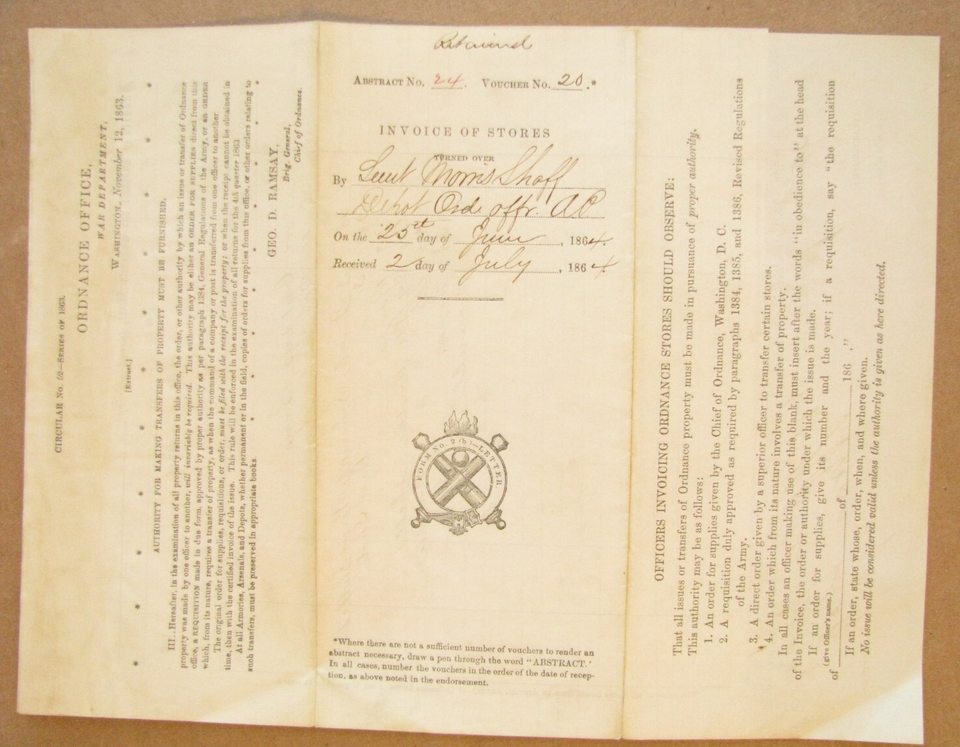 CIRCULAR No. 92—SERIES OF 1863.
ORDNANCE OFFICE,
WAR DEPARTMENT,
WASHINGTON, November 12, 1863.
[Extract.]
* * * * * *
AUTHORITY FOR MAKING TRANSFERS OF PROPERTY MUST BE FURNISHED.
III..Hereafter, in the examination of all property returns in this office, the order, or other authority by which an issue or transfer of Ordnance
property was made by one officer to another, will invariably be required. This authority may be either an ORDER FOR SUPPLIES direct from this
office, a REQUISITION made in due form, approved by proper authority as per paragraph 1384, General Regulations of the Army, or an ORDER
which, from its nature, requires a transfer of property, as when the command of a company or post is transferred from one officer to another
The original order for supplies, requisitions, or order, must be filed with the receipt for the property; or when the receipt cannot be obtained in
time, then with the certified invoice of the issue. This rule will be enforced in the examination of all returns for the 4th quarter 1863.
At all Armories, Arsenals, and Depots, whether permanent or in the field, copies of orders for supplies from this office, or other orders relating to
such transfers, must be preserved in appropriate books.
* * * * * *
GEO. D. RAMSAY,
Brig. General,
Chief of Ordnance.
ABSTRACT No. 24. VOUCHER No. 20.*
INVOICE OF STORES
TURNED OVER
By Lieut Morris Shaff
Depot Ord. offr. A.P.
On the 25th day of June, 1864.
Received 2 day of July, 1864
FORM No. 2 (b)—LETTER
*Where there are not a sufficient number of vouchers to render an
abstract necessary, draw a pen through the word "ABSTRACT."
In all cases, number the vouchers in the order of the date of recep-
tion, as above noted in the endorsement.
OFFICERS INVOICING ORDNANCE STORES SHOULD OBSERVE:
That all issues or transfers of Ordnance property must be made in pursuance of proper authority.
This authority may be as follows:
1. An order for supplies given by the Chief of Ordnance, Washington, D. C.
2. A requisition duly approved as required by paragraphs 1384, 1385, and 1386, Revised Regulations
of the Army.
3. A direct order given by a superior officer to transfer certain stores.
4. An order which from its nature involves a transfer of property.
In all cases an officer making use of this blank, must insert after the words "in obedience to" at the head
of the Invoice, the order or authority under which the issue is made.
If an order for supplies, give its number and the year; if a requisition, say "the requisition
(give Officer's name.)
of of 186 ."
If an order, state whose, order, when, and where given.
No issue will be considered valid unless the authority is given as here directed.